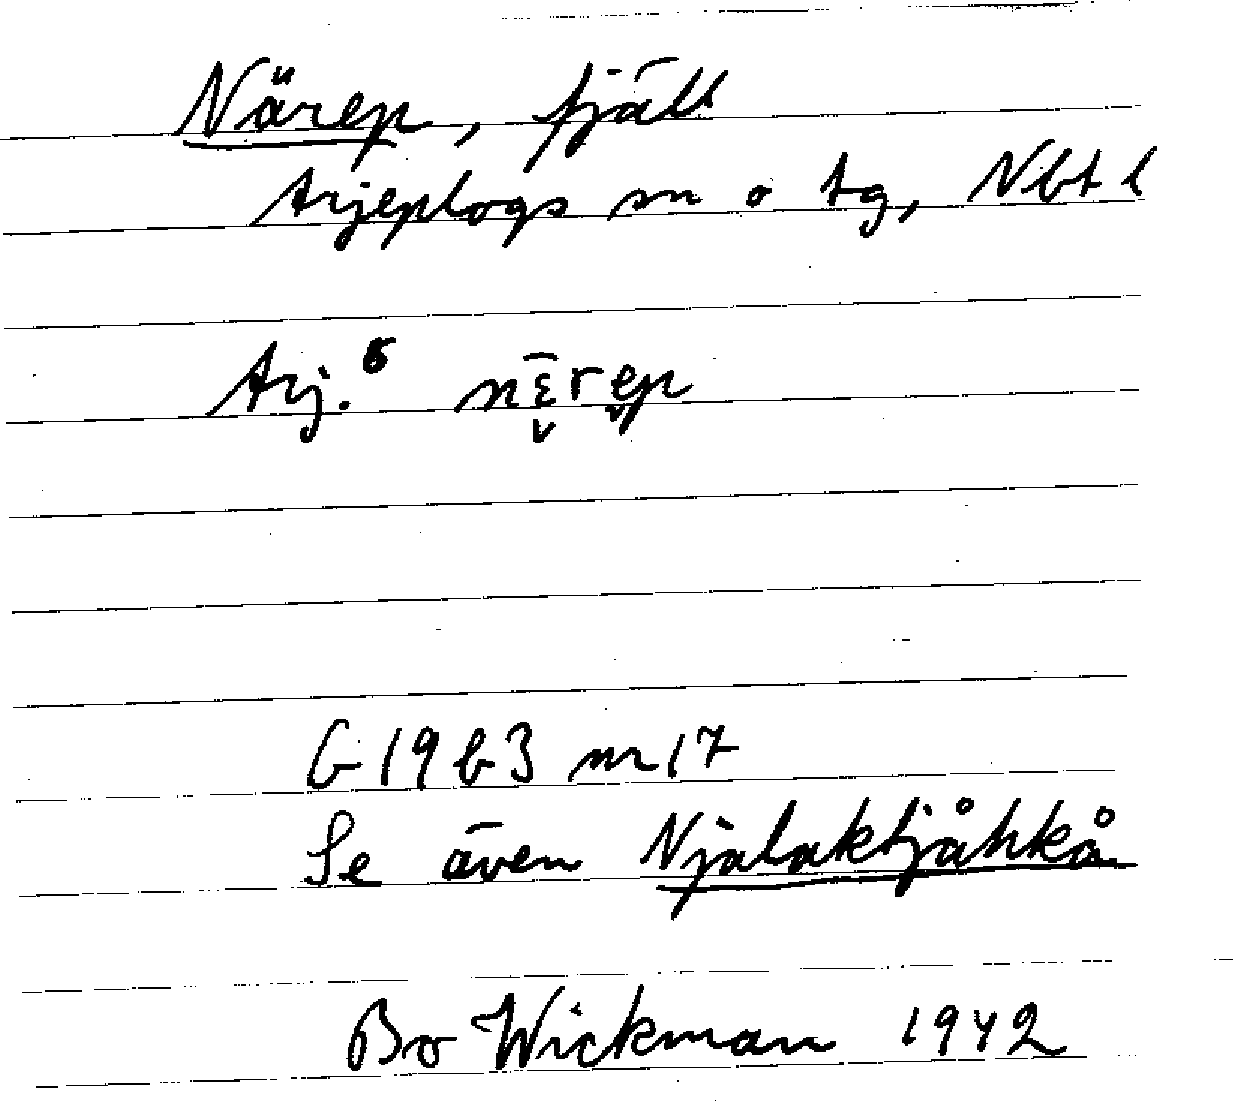 Närep, fjäll
Arjeplogs sn o tg, Nbt l
Arj.⁶ nɛ̬̄re̬p
G 19 b 3 nr 17
Se även Njalaktjåhkå
Bo Wickman 1942